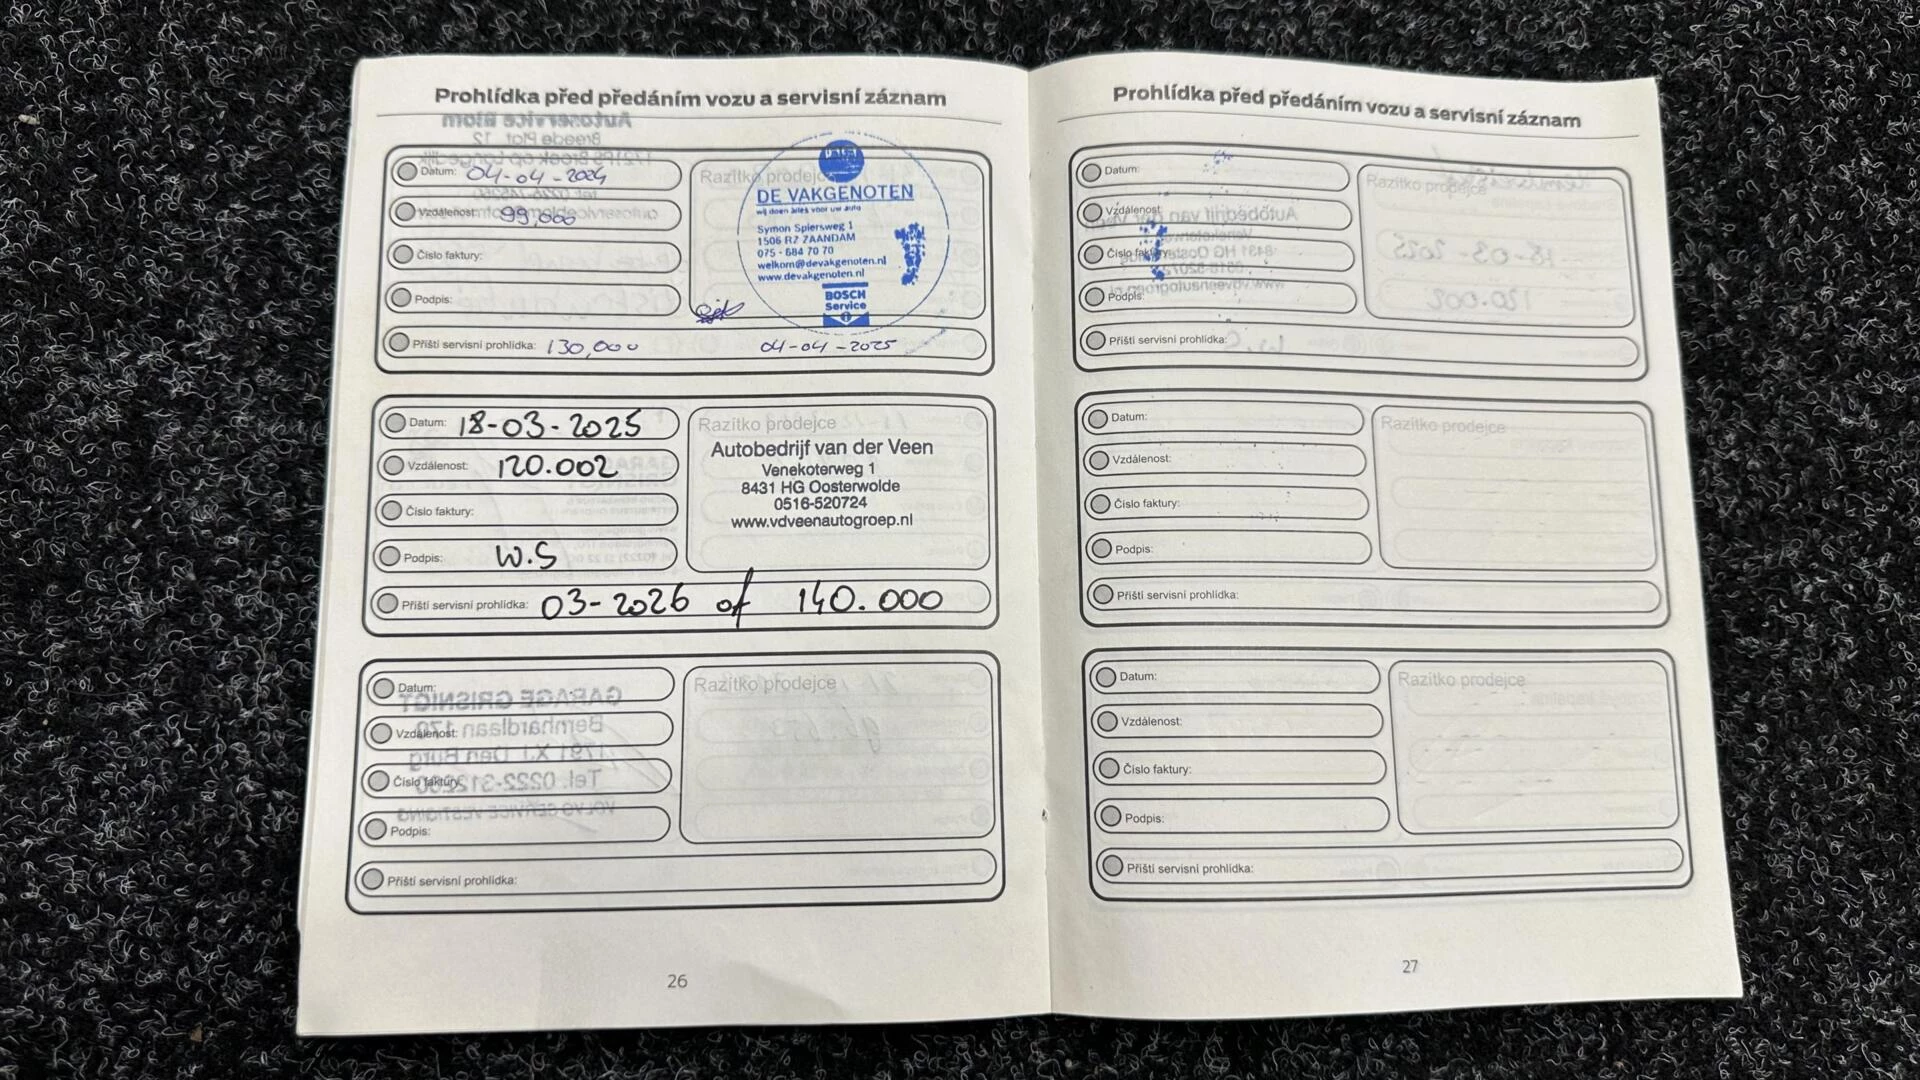 Prohlídka před předáním vozu a servisní záznam
Datum: 04-04-2024
Vzdálenost: 99,000
Číslo faktury:
Podpis:
Razítko prodejce
DE VAKGENOTEN
wij doen alles voor uw auto
Symon Spiersweg 1
1506 RZ ZAANDAM
075 - 684 70 70
welkom@devakgenoten.nl
www.devakgenoten.nl
BOSCH
Service
Příští servisní prohlídka: 130,000 04-04-2025
Datum: 18-03-2025
Vzdálenost: 120.002
Číslo faktury:
Podpis: W.S
Razítko prodejce
Autobedrijf van der Veen
Venekoterweg 1
8431 HG Oosterwolde
0516-520724
www.vdveenautogroep.nl
Příští servisní prohlídka: 03-2026 of 140.000
Datum:
Vzdálenost:
Číslo faktury:
Podpis:
Razítko prodejce
Příští servisní prohlídka:
26
Prohlídka před předáním vozu a servisní záznam
Datum:
Vzdálenost:
Číslo faktury:
Podpis:
Razítko prodejce
Příští servisní prohlídka:
Datum:
Vzdálenost:
Číslo faktury:
Podpis:
Razítko prodejce
Příští servisní prohlídka:
Datum:
Vzdálenost:
Číslo faktury:
Podpis:
Razítko prodejce
Příští servisní prohlídka:
27